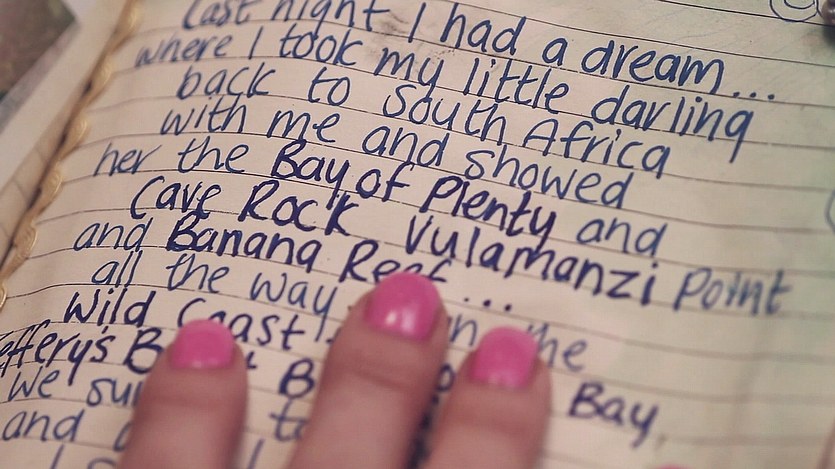 Last night I had a dream...
where I took my little darling
back to South Africa
with me and showed
her the Bay of Plenty and
Cave Rock Vulamanzi Point
and Banana Reef...
all the way the
Wild Coast
Jeffery's Bay
we
and